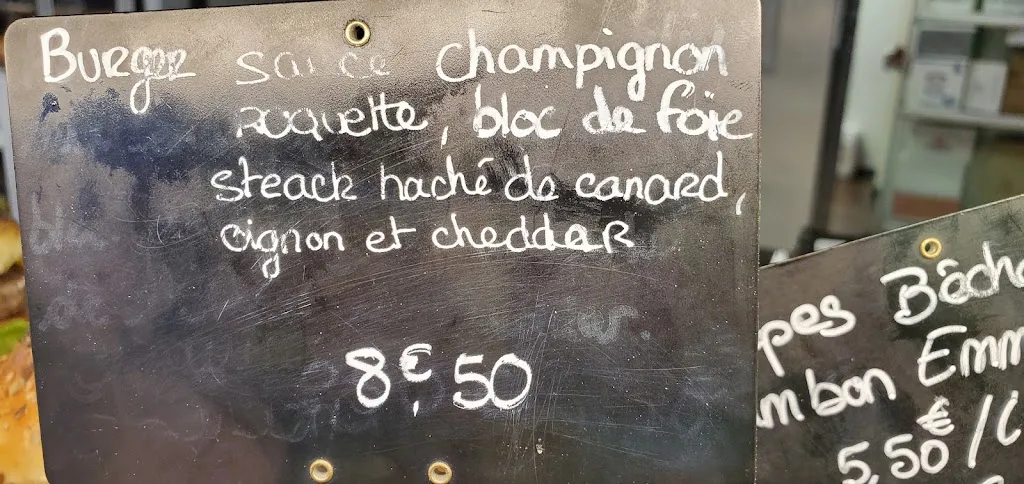 Burger sauce champignon
roquette, bloc de foie
steack haché de canard,
oignon et cheddar
8€,50
pes Bâche
mbon Emm
5,50€/